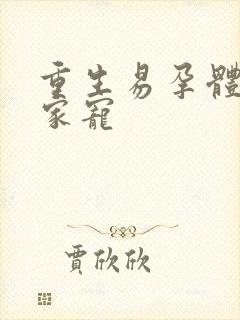 重生易孕體
家寵
賈欣欣